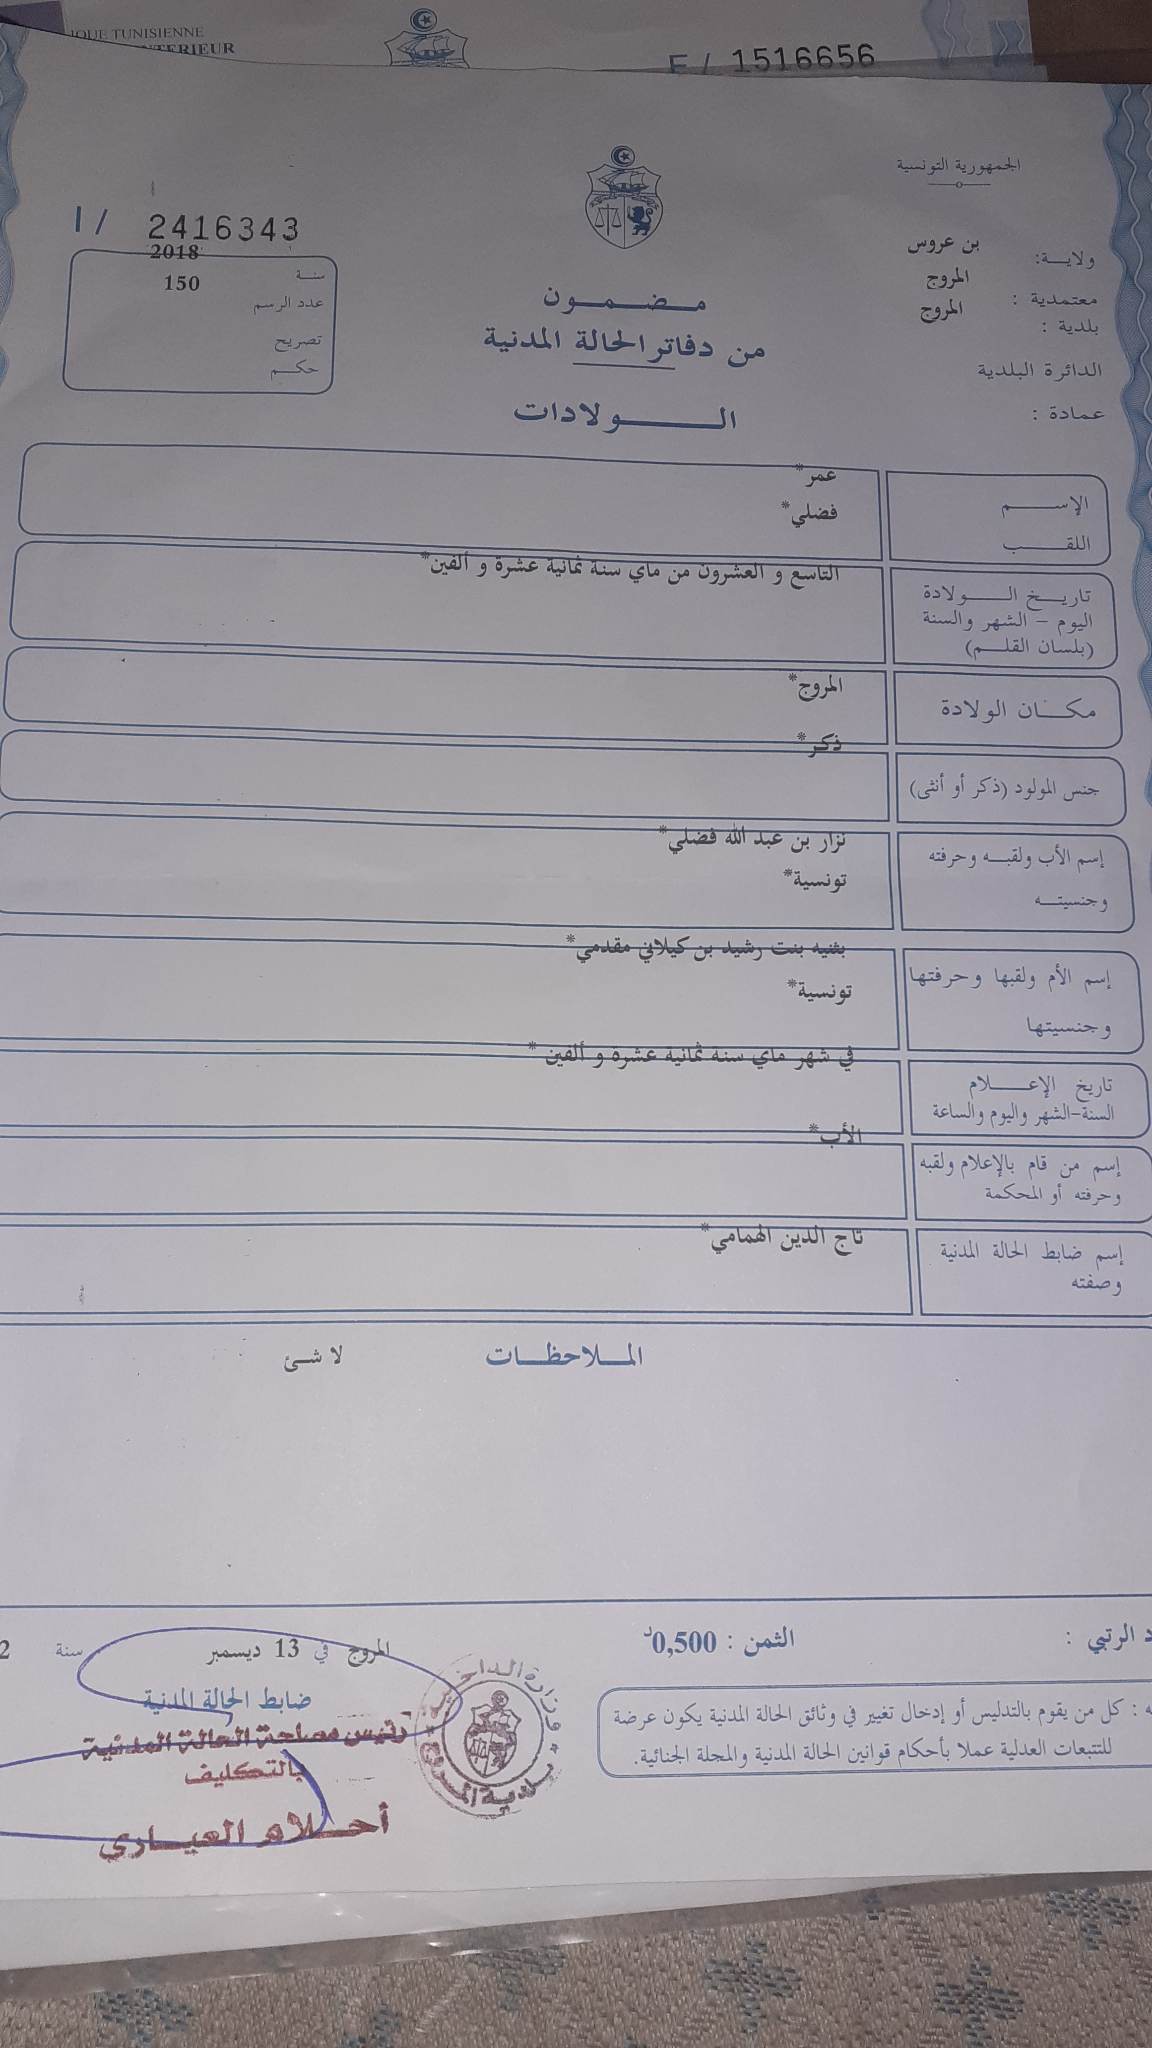 IQUE TUNISIENNE
INTERIEUR
E / 1516656
الجمهورية التونسية
I / 2416343
ولايـــة: بن عروس
معتمدية : المروج
بلدية : المروج
الدائرة البلدية
عمادة :
سنة 2018
عدد الرسم 150
تصريح
حكــم
مـضـمـــون
من دفاتر الحالة المدنية
الـــــولادات
الإســـــم عمر*
اللقـــــب فضلي*
تاريــخ الـــــولادة التاسع و العشرون من ماي سنة ثمانية عشرة و ألفين*
اليوم - الشهر والسنة
(بلسان القلــم)
مكـــان الولادة المروج*
جنس المولود (ذكر أو أنثى) ذكر*
إسم الأب ولقبــه وحرفته نزار بن عبد الله فضلي*
وجنسيتــه تونسية*
إسم الأم ولقبها وحرفتها بثنيه بنت رشيد بن كيلاني مقدمي*
وجنسيتها تونسية*
تاريخ الإعـــــلام في شهر ماي سنة ثمانية عشرة و ألفين *
السنة-الشهر واليوم والساعة
إسم من قام بالإعلام ولقبه الأب*
وحرفته أو المحكمة
إسم ضابط الحالة المدنية تاج الدين الهمامي*
وصفته
المــلاحظــات لا شئ
د الرتبي :
الثمن : 0,500د
المروج في 13 ديسمبر سنة 2
ضابط الحالة المدنية
رئيس مصلحة الحالة المدنية
بالتكليف
أحــلام العيــاري
وزارة الداخلية
بلدية المروج
ه : كل من يقوم بالتدليس أو إدخال تغيير في وثائق الحالة المدنية يكون عرضة
للتتبعات العدلية عملا بأحكام قوانين الحالة المدنية والمجلة الجنائية.